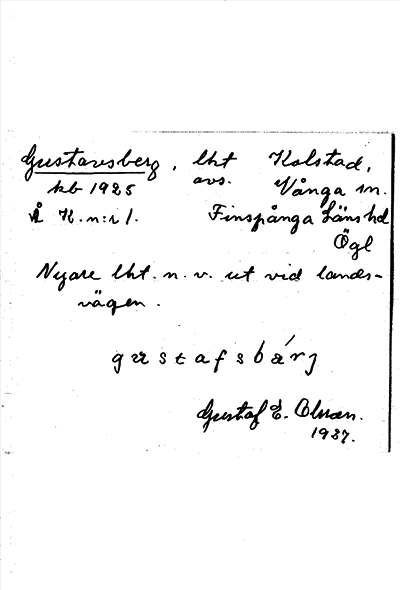 Gustavsberg, lht Kolstad,
kb 1925 avs. Vånga sn.
Å K. n:r 1. Finspånga Läns hd
Ögl
Nyare lht. n. v. ut vid lands-
vägen.
gustafsbárj
Gustaf E. Olsson.
1937.